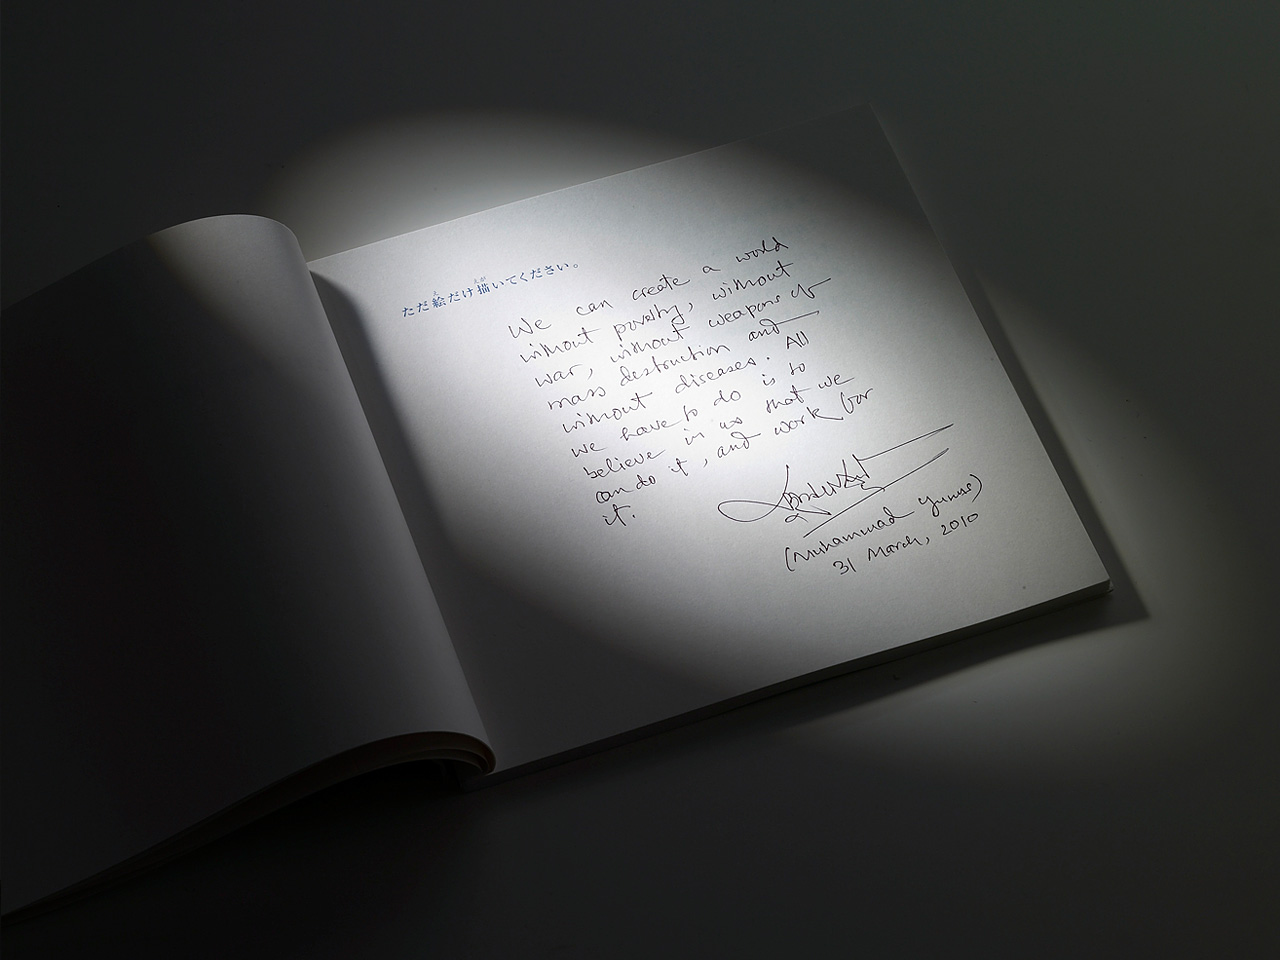 ただ絵だけ描いてください。
We can create a world
without poverty, without
war, without weapons of
mass destruction and
without diseases. All
we have to do is to
believe in us that we
can do it, and work for
it.
(Muhammad Yunus)
31 March, 2010